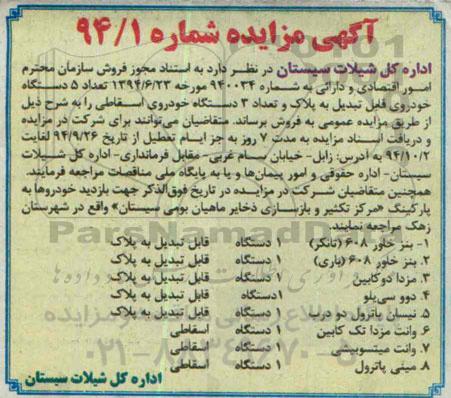 آگهی مزایده شماره ۹۴/۱
اداره کل شیلات سیستان در نظر دارد به استناد مجوز فروش سازمان محترم
امور اقتصادی و دارائی به شماره ۹۴۰۰۳۴ مورخه ۱۳۹۴/۶/۲۳ تعداد ۵ دستگاه
خودروی قابل تبدیل به پلاک و تعداد ۳ دستگاه خودروی اسقاطی را به شرح ذیل
از طریق مزایده عمومی به فروش برساند. متقاضیان می‌توانند برای شرکت در مزایده
و دریافت اسناد مزایده به مدت ۷ روز به جز ایام تعطیل از تاریخ ۹۴/۹/۲۶ لغایت
۹۴/۱۰/۲ به آدرس: زابل- خیابان سام غربی- مقابل فرمانداری- اداره کل شیلات
سیستان- اداره حقوقی و امور پیمان‌ها و یا به پایگاه ملی مناقصات مراجعه فرمایند.
همچنین متقاضیان شرکت در مزایده در تاریخ فوق‌الذکر جهت بازدید خودروها به
پارکینگ «مرکز تکثیر و بازسازی ذخایر ماهیان بومی سیستان» واقع در شهرستان
زهک مراجعه نمایند.
۱- بنز خاور ۶۰۸ (تانکر) ۱ دستگاه قابل تبدیل به پلاک
۲. بنز خاور ۶۰۸ (باری) ۱ دستگاه قابل تبدیل به پلاک
۳. مزدا دوکابین ۱ دستگاه قابل تبدیل به پلاک
۴. دوو سی‌یلو ۱دستگاه قابل تبدیل به پلاک
۵. نیسان پاترول دو درب ۱ دستگاه قابل تبدیل به پلاک
۶. وانت مزدا تک کابین ۱ دستگاه اسقاطی
۷. وانت میتسوبیشی ۱ دستگاه اسقاطی
۸. مینی پاترول ۱ دستگاه اسقاطی
اداره کل شیلات سیستان
ParsNamadData
۰۲۱-۸۸۳۴۹۶۷۰-۵